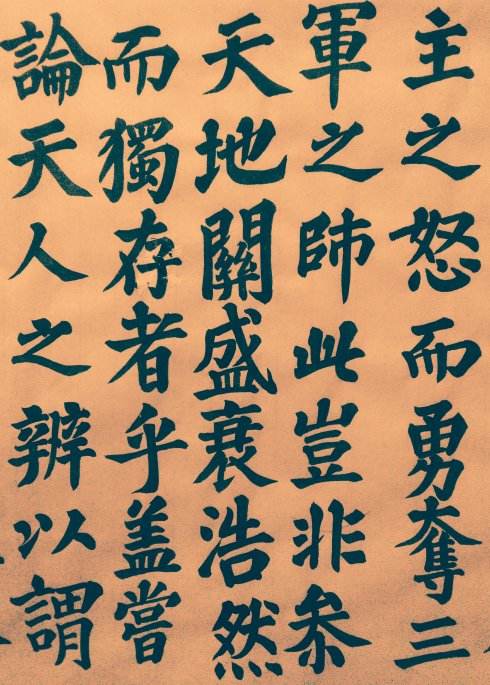 主之怒而勇奪三
軍之師此豈非參
天地關盛衰浩然
而獨存者乎盖嘗
論天人之辨以謂